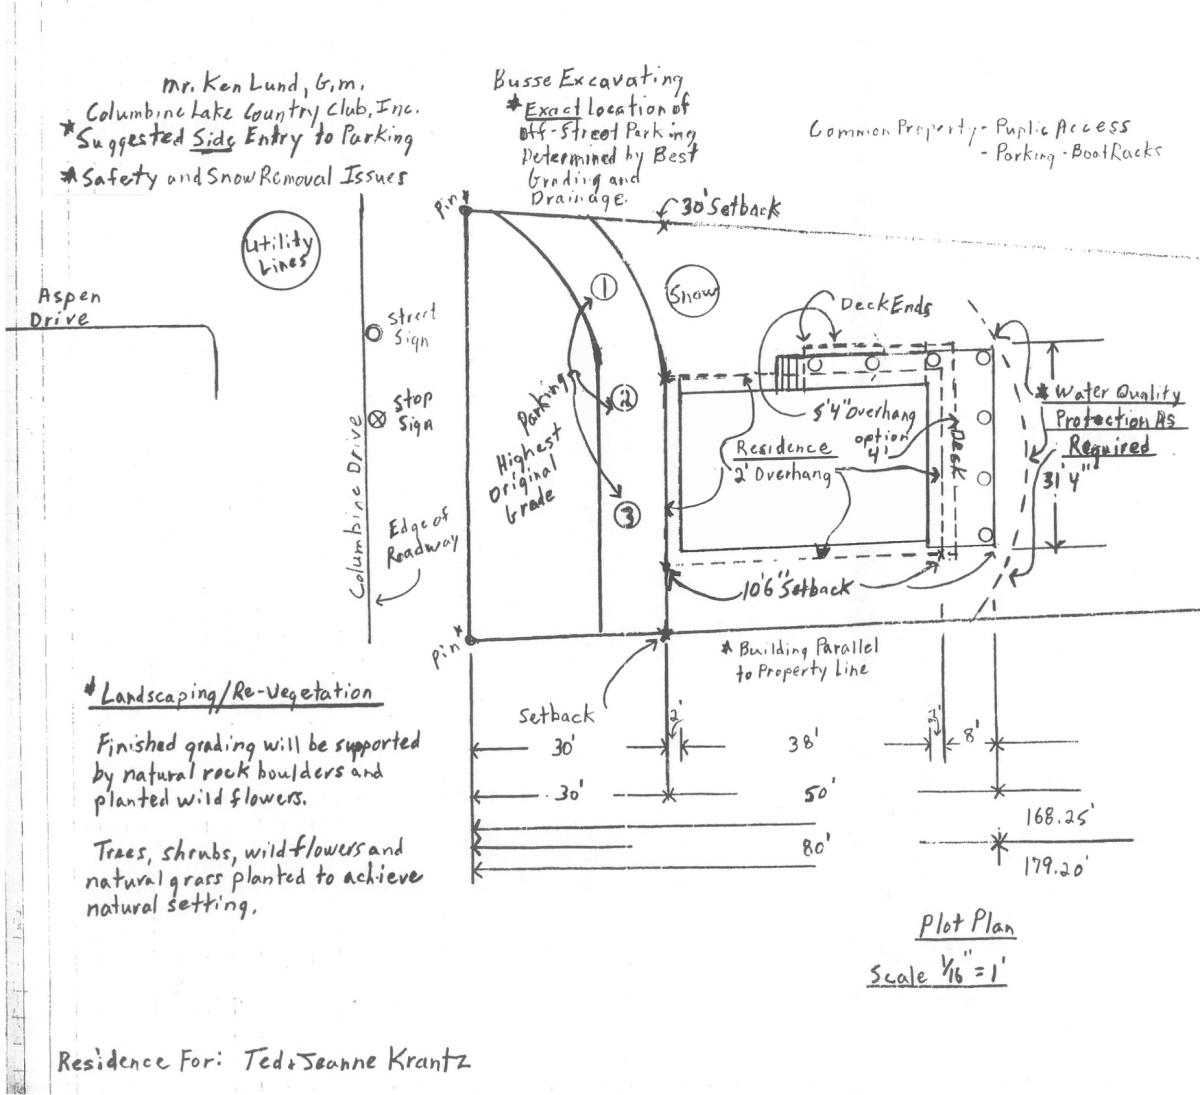 Mr. Ken Lund, G.M.
Columbine Lake Country Club, Inc.
* Suggested Side Entry to Parking
* Safety and Snow Removal Issues
Busse Excavating
* Exact Location of
Off-Street Parking
Determined by Best
Grading and
Drainage.
Common Property - Puplic Access
- Parking - Boat Racks
Pin
30' Setback
Utility
Lines
Aspen
Drive
Street
Sign
Stop
Sign
Columbine Drive
Edge of
Roadway
1
2
3
Parking
Highest
Original
Grade
Snow
Deck Ends
5'4" Overhang
Residence
2' Overhang
option
4'
Deck
* Water Quality
Protection As
Required
31'4"
10'6" Setback
Pin
* Building Parallel
to Property Line
Setback
* Landscaping/Re-Vegetation
Finished grading will be supported
by natural rock boulders and
planted wild flowers.
Trees, shrubs, wildflowers and
natural grass planted to achieve
natural setting.
30'
2'
38'
8'
30'
50'
168.25'
80'
179.20'
Plot Plan
Scale 1/16" = 1'
Residence For: Ted & Jeanne Krantz